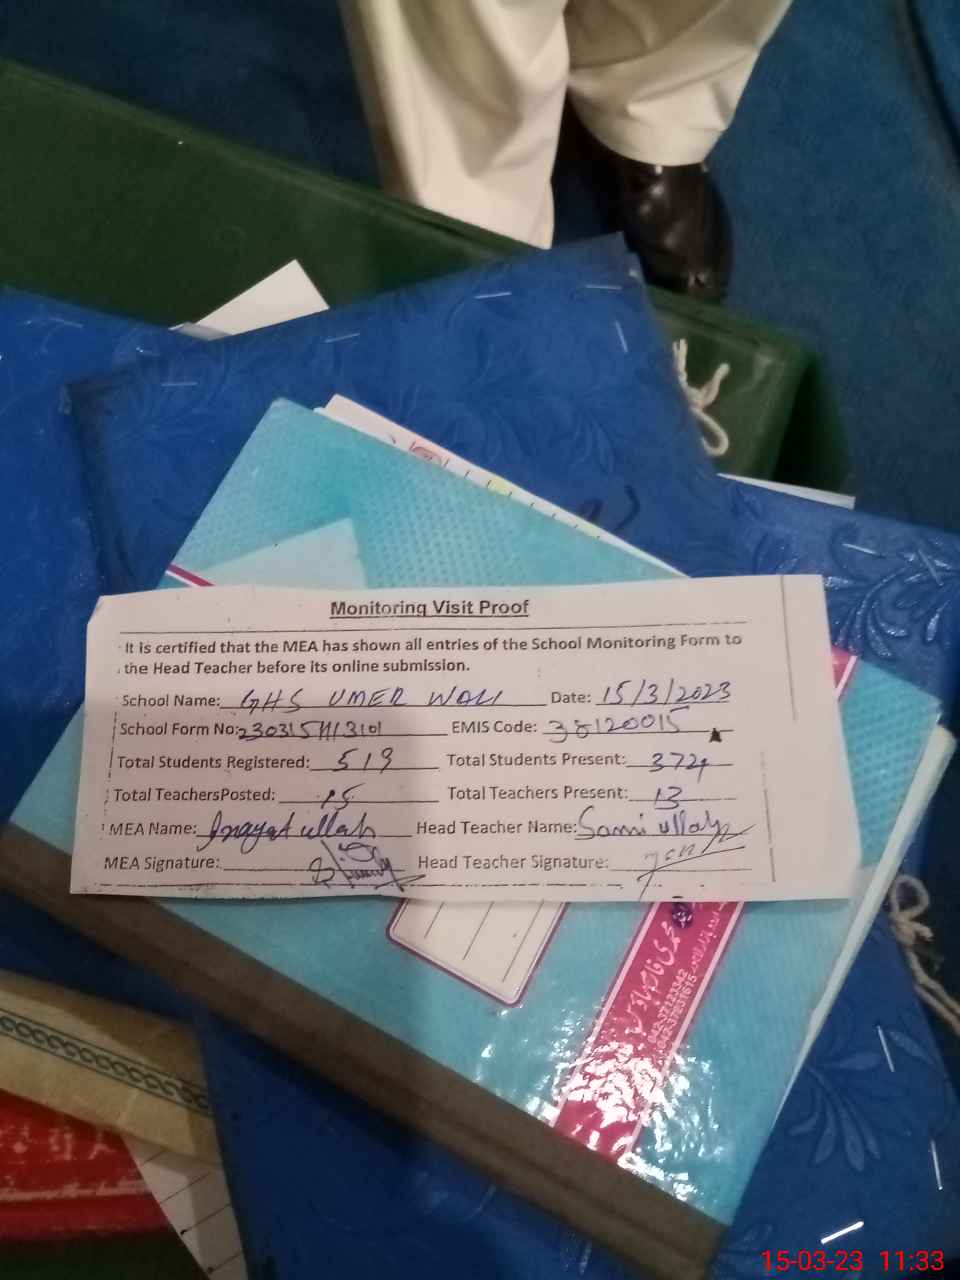 Monitoring Visit Proof
It is certified that the MEA has shown all entries of the School Monitoring Form to
the Head Teacher before its online submission.
School Name: GHS UMER WALI Date: 15/3/2023
School Form No: EMIS Code: 38120015
Total Students Registered: 519 Total Students Present: 372
Total TeachersPosted: 15 Total Teachers Present: 13
MEA Name: Inayat ullah Head Teacher Name: Sami ullah
MEA Signature: Head Teacher Signature:
15-03-23 11:33